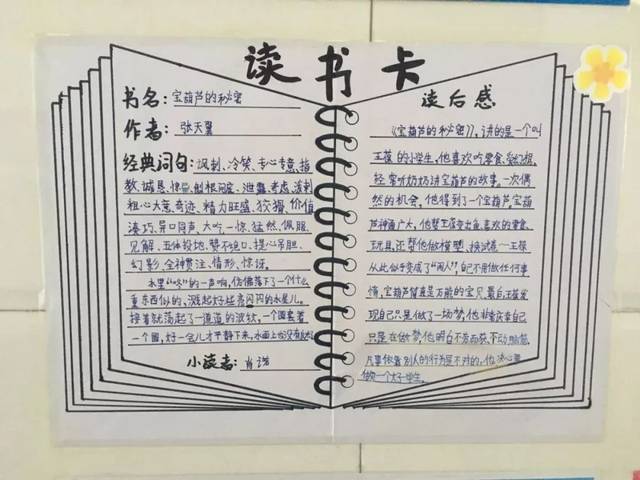 读书卡
书名：宝葫芦的秘密
作者：张天翼
经典词句：讽刺、冷笑、专心专意、指
教、诚恳、惊、刨根问底、泄露、考虑、
粗心大意、奇迹、精力旺盛、狡猾、价值
凑巧、异口同声、大吃一惊、猛然、佩服、
见解、五体投地、赞不绝口、提心吊胆、
幻影、全神贯注、情形、惊讶。
水里“咚”的一声响，仿佛落下了一个什么
重东西似的，溅起好些亮闪闪的水星儿。
接着就荡起了一道道的波纹，一个圈套着
一个圈，好一会儿才平静下来，水面上
小读者：肖
读后感
《宝葫芦的秘密》，讲的是一个叫
王葆的小学生，他喜欢听零食、
轻常听奶奶讲宝葫芦的故事。一次偶
然的机会，他得到了一个宝葫芦，宝葫
芦神通广大，他帮王葆变出鱼、喜欢的零食、
玩具，还帮他做模型、换试卷——王葆
从此似乎变成了“闲人”，自己不用做任何事
情，宝葫芦简直是万能的宝贝，最后王葆发
现自己只是做了一场梦，他非常庆幸自己
只是在做梦，他明白不劳而获、不动脑筋、
凡事依靠别人的行为是不对的，他决心要
做一个好学生。